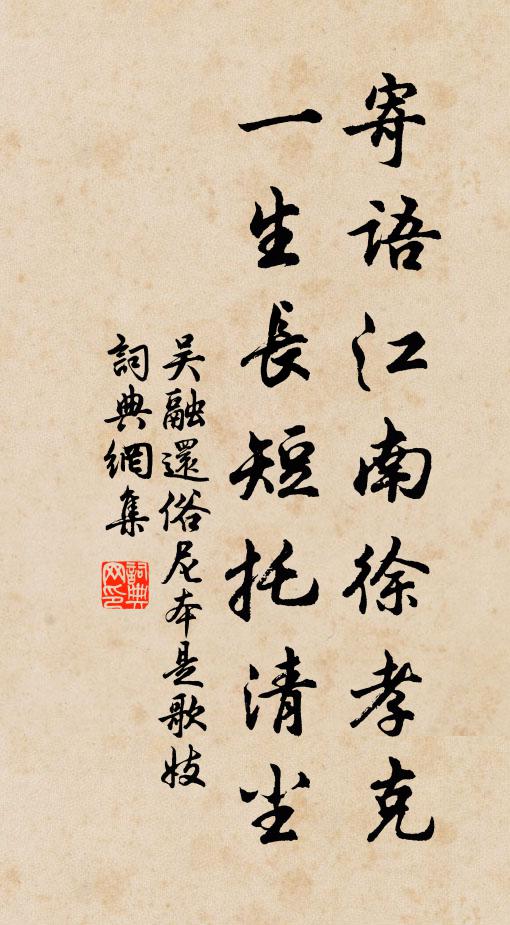 寄語江南徐孝克
一生長短托清尘
吴融還俗尼本是歌妓
詞典網集
詞典
网印